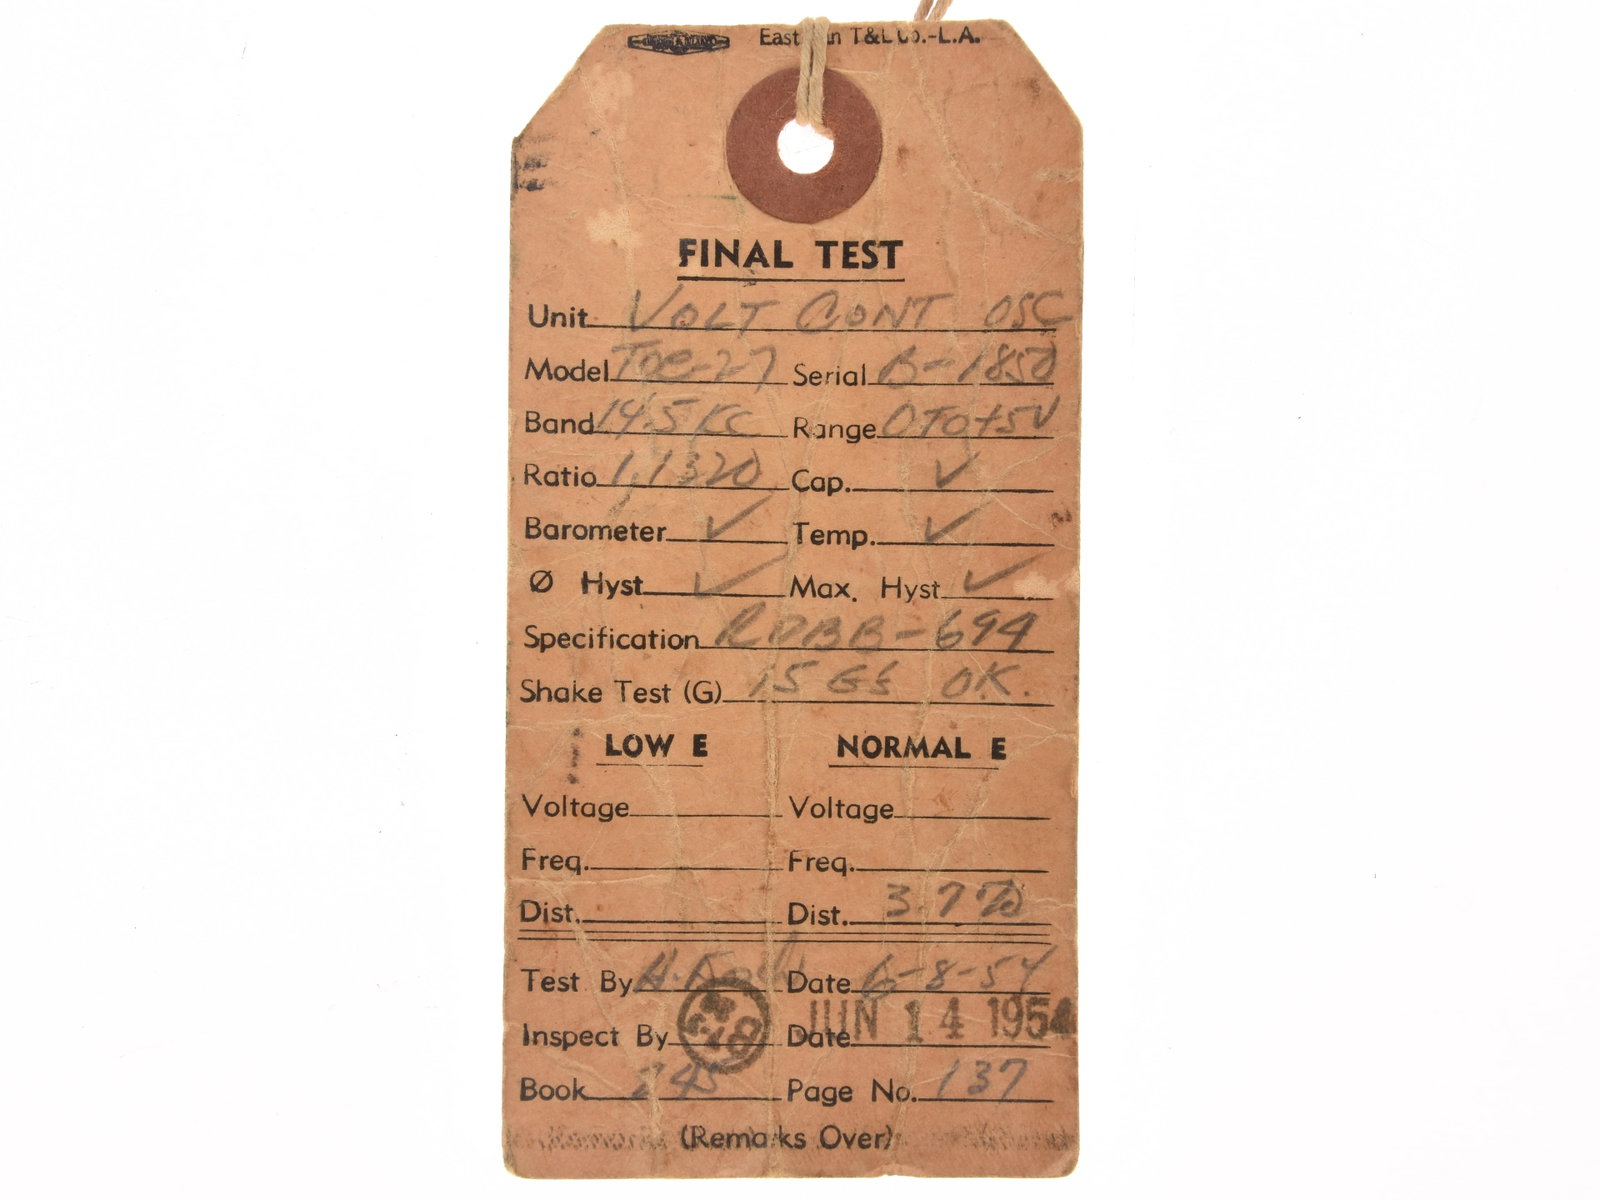 T&L Co.-L.A.
FINAL TEST
Unit VOLT CONT OSC
Model TOE-27 Serial B-1850
Band 14.5 KC Range 0 TO +5V
Ratio 1.1320 Cap. ✓
Barometer ✓ Temp. ✓
Ø Hyst ✓ Max. Hyst ✓
Specification RDBB-694
Shake Test (G) 15 G'S OK.
LOW E NORMAL E
Voltage Voltage
Freq. Freq.
Dist. Dist. 3.7%
Test By H. Date 6-8-54
Inspect By Date JUN 14 1954
Book 245 Page No. 137
(Remarks Over)